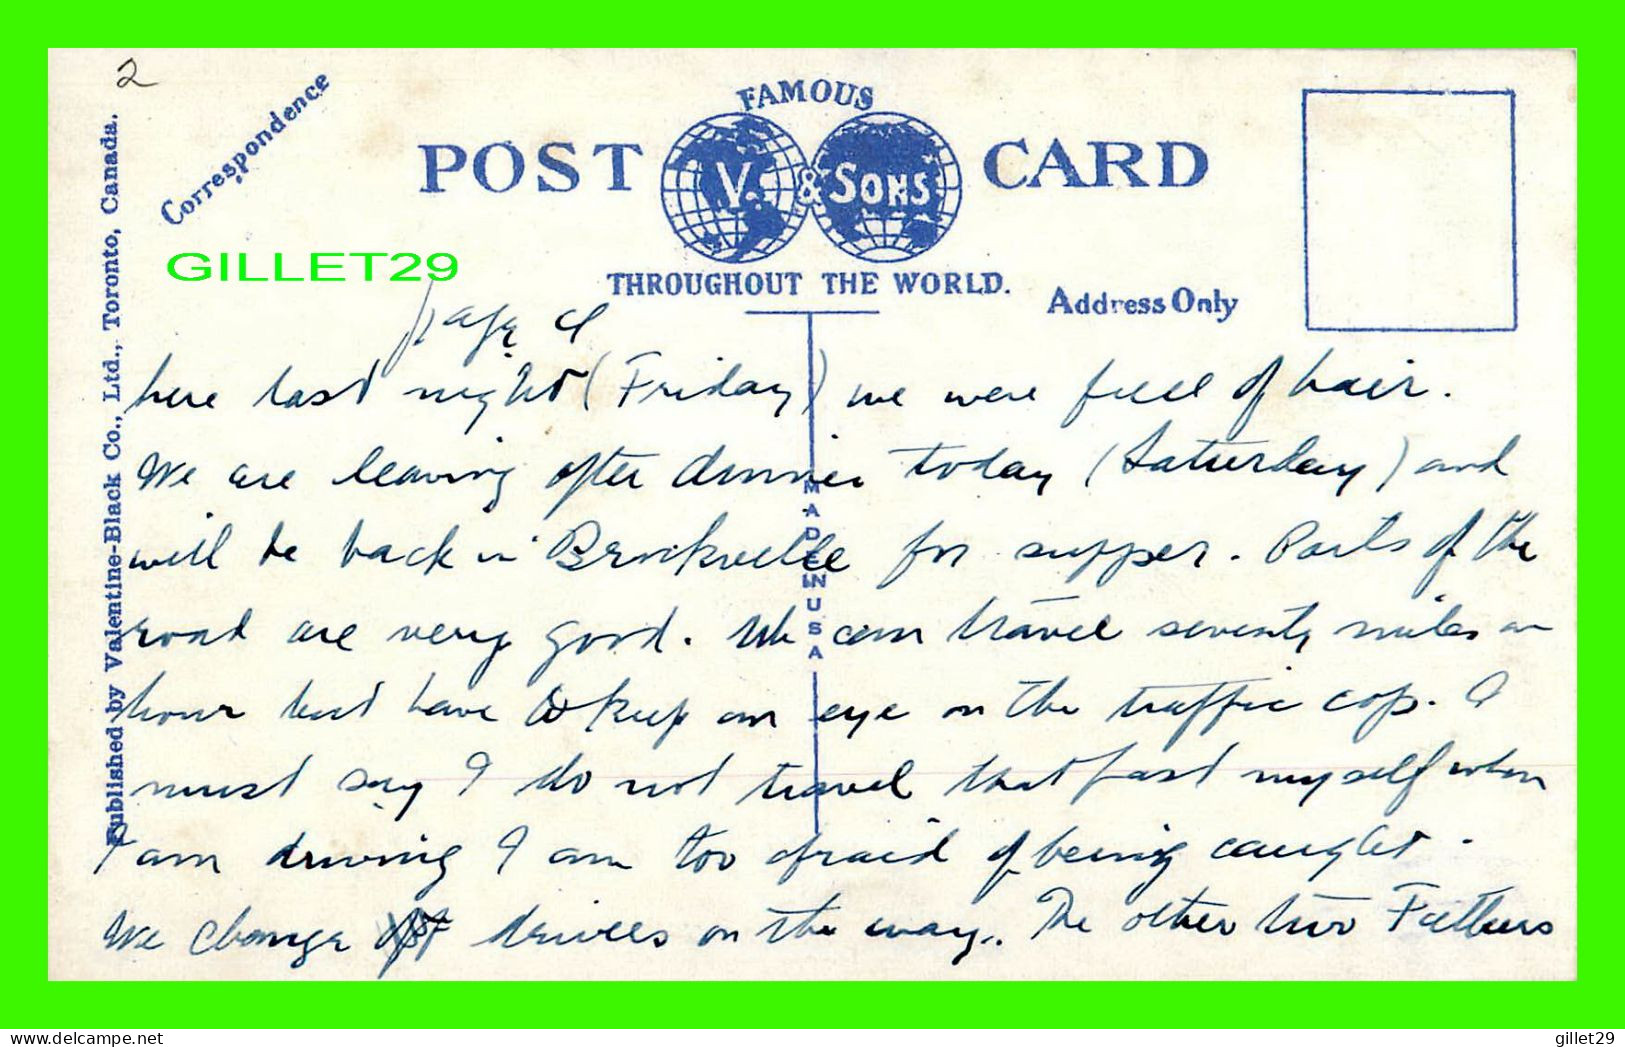 2
Correspondence
FAMOUS
POST V. & SONS CARD
THROUGHOUT THE WORLD.
Address Only
GILLET29
Published by Valentine-Black Co., Ltd., Toronto, Canada.
MADE IN USA
page 4
here last night (Friday) we were full of hair.
We are leaving after dinner today (Saturday) and
will be back in Brockville for supper. Parts of the
road are very good. We can travel seventy miles an
hour but have to keep an eye on the traffic cop. I
must say I do not travel that fast myself when
I am driving I am too afraid of being caught.
We change drivers on the way. The other two Fathers
delcampe.net
gillet29